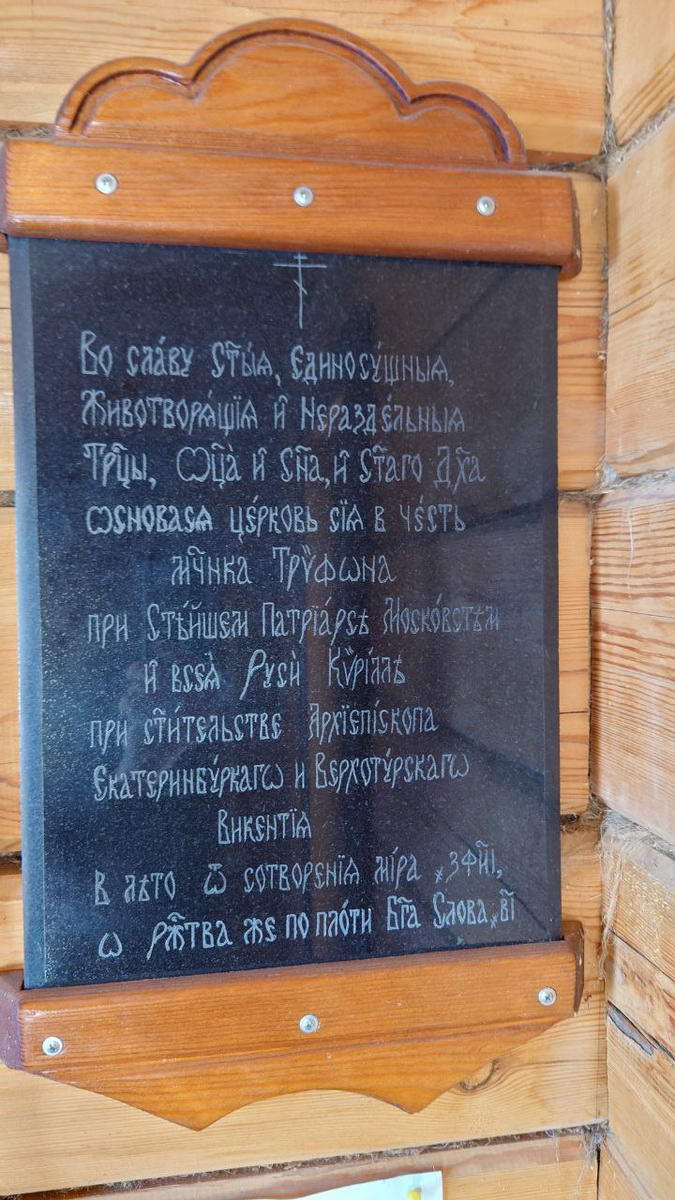 Во сла́вꙋ Ст҃ы́ѧ, Єдиносꙋ́щныѧ,
Животворѧ́щїѧ и҆ Нераздѣ́льныѧ
Трⷪ҇цы, Ѻц҃а̀ и҆ Сн҃а, и҆ Ст҃аго Дх҃а
ѡсновасѧ це́рковь сїѧ в че́сть
мч҃нка Трѵ́фѡна
при Ст҃ѣ́йшем Патрїа́рсѣ Моско́встѣм
и҆ всеѧ̀ Рꙋсѝ Кѷрі́ллѣ
при ст҃и́тельстве Архїєпі́скопа
Єкатеринбꙋ́ркагѡ и Верхотꙋ́рскагѡ
Викентїѧ
в лѣто ѿ сотворенїѧ мі́ра ҂зфи҃і,
ѡ рж҃тва же по пло́ти Бг҃а Сло́ва ҂в҃і